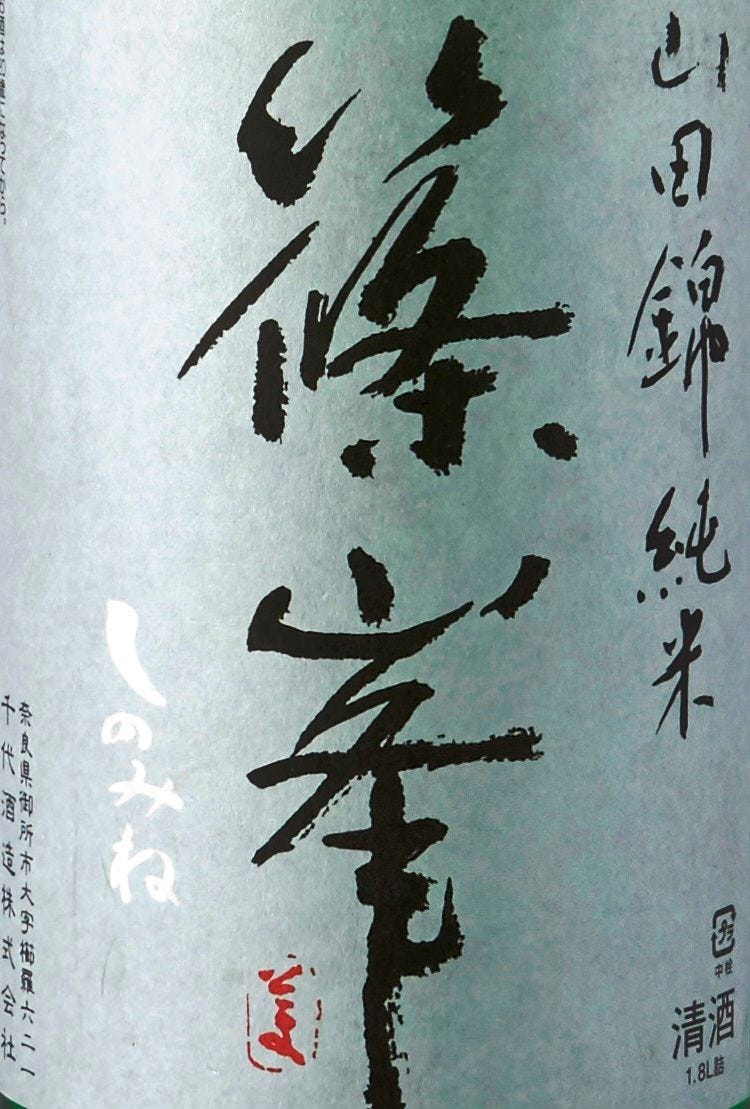 山田錦純米
篠峯
しのみね
奈良県御所市大字櫛羅六二一
千代酒造株式会社
プラ
中栓
清酒
1.8L詰